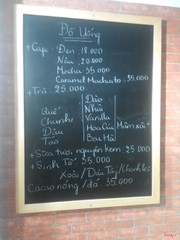 Đồ Uống
+ Cafe: Đen: 18.000
Nâu: 20.000
Mocha 35.000
Caramel Machiato: 35.000
+ Trà: 25.000
Đào
Quế | Nhài
Chanh | Vanilla
Dâu | Hoa Cúc
Táo | Bạc Hà
+ Sữa tươi nguyên kem: 25.000
+ Sinh Tố: 35.000
Xoài / Dâu Tây / Chanh leo
Cacao nóng / đá: 35.000